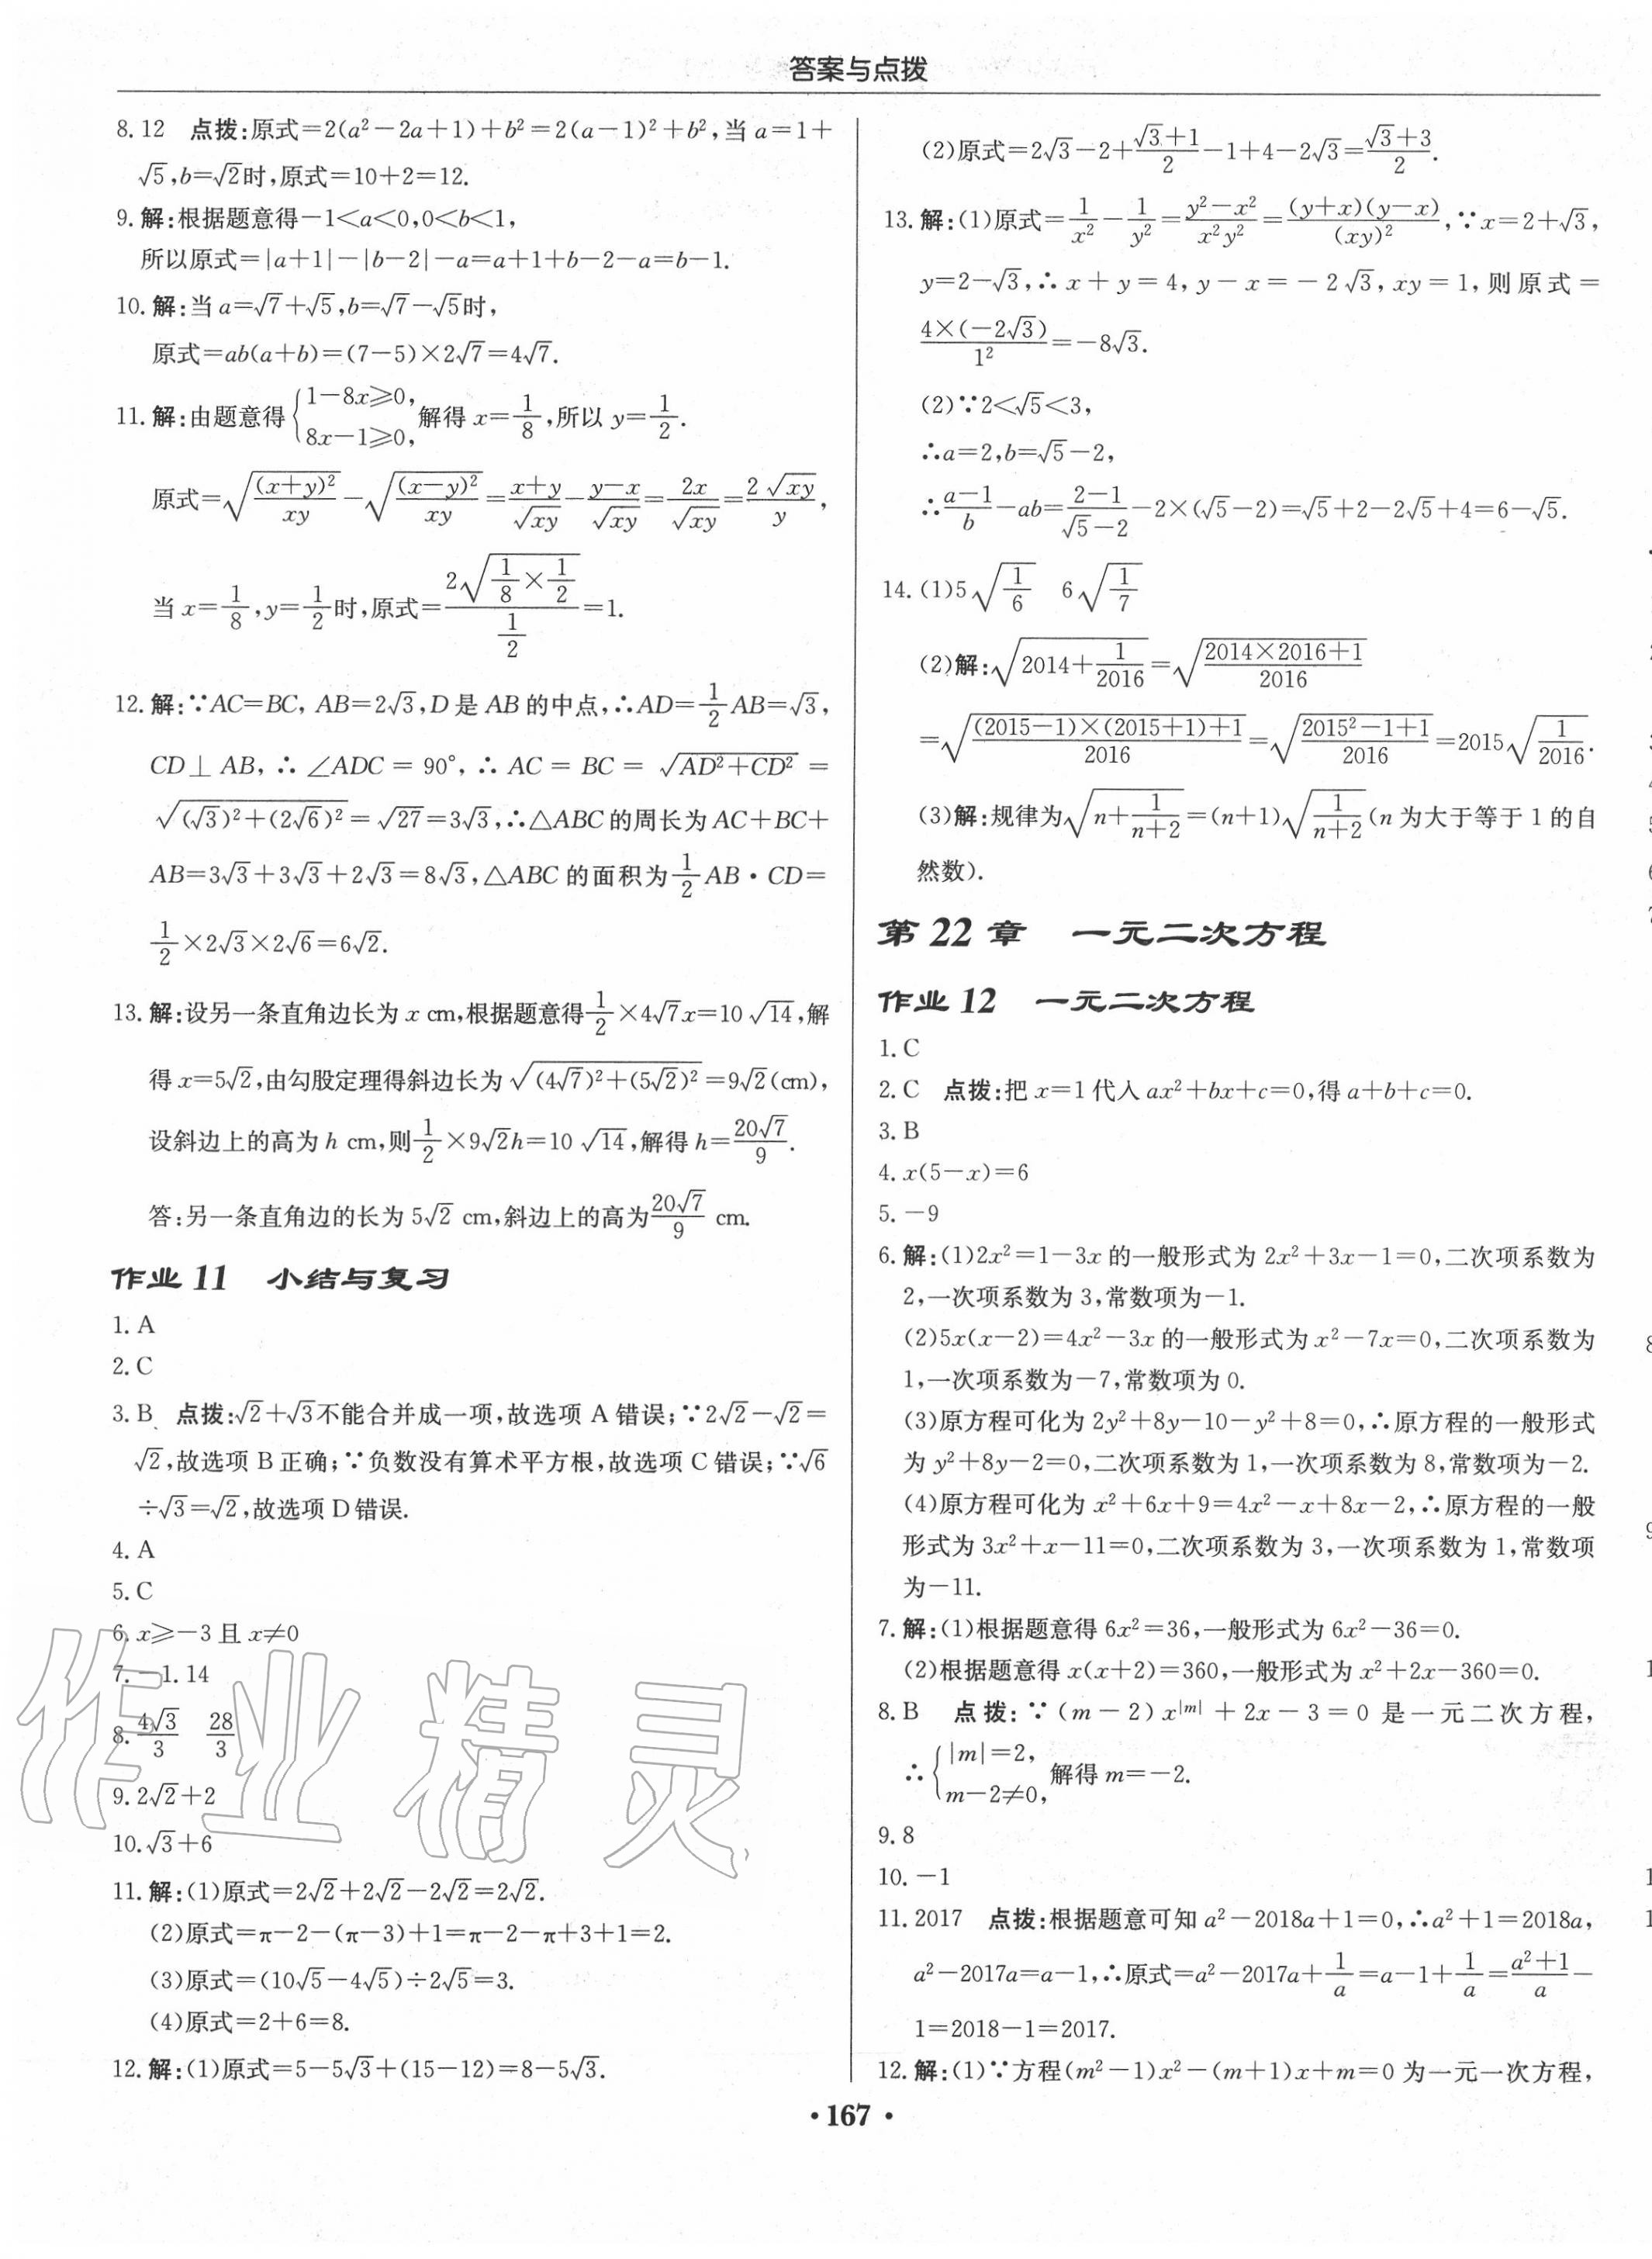 答案与点拨
8.12 点拨:原式=2(a²-2a+1)+b²=2(a-1)²+b²,当a=1+
√5,b=√2时,原式=10+2=12.
9.解:根据题意得-1<a<0,0<b<1,
所以原式=|a+1|-|b-2|-a=a+1+b-2-a=b-1.
10.解:当a=√7+√5,b=√7-√5时,
原式=ab(a+b)=(7-5)×2√7=4√7.
11.解:由题意得{1-8x≥0, 8x-1≥0, 解得x=1/8,所以y=1/2.
原式=√((x+y)²/xy)-√((x-y)²/xy)=(x+y)/√xy-(y-x)/√xy=2x/√xy=2√xy/y,
当x=1/8,y=1/2时,原式=2√(1/8×1/2)/(1/2)=1.
12.解:∵AC=BC,AB=2√3,D是AB的中点,∴AD=1/2AB=√3,
CD⊥AB,∴∠ADC=90°,∴AC=BC=√(AD²+CD²)=
√((√3)²+(2√6)²)=√27=3√3,∴△ABC的周长为AC+BC+
AB=3√3+3√3+2√3=8√3,△ABC的面积为1/2AB·CD=
1/2×2√3×2√6=6√2.
13.解:设另一条直角边长为x cm,根据题意得1/2×4√7x=10√14,解
得x=5√2,由勾股定理得斜边长为√((4√7)²+(5√2)²)=9√2(cm),
设斜边上的高为h cm,则1/2×9√2h=10√14,解得h=20√7/9.
答:另一条直角边的长为5√2 cm,斜边上的高为20√7/9 cm.
作业11 小结与复习
1.A
2.C
3.B 点拨:√2+√3不能合并成一项,故选项A错误;∵2√2-√2=
√2,故选项B正确;∵负数没有算术平方根,故选项C错误;∵√6
÷√3=√2,故选项D错误.
4.A
5.C
6.x≥-3且x≠0
7.-1.14
8.4√3/3 28/3
9.2√2+2
10.√3+6
11.解:(1)原式=2√2+2√2-2√2=2√2.
(2)原式=π-2-(π-3)+1=π-2-π+3+1=2.
(3)原式=(10√5-4√5)÷2√5=3.
(4)原式=2+6=8.
12.解:(1)原式=5-5√3+(15-12)=8-5√3.
(2)原式=2√3-2+(√3+1)/2-1+4-2√3=(√3+3)/2.
13.解:(1)原式=1/x²-1/y²=(y²-x²)/x²y²=(y+x)(y-x)/(xy)²,∵x=2+√3,
y=2-√3,∴x+y=4,y-x=-2√3,xy=1,则原式=
4×(-2√3)/1²=-8√3.
(2)∵2<√5<3,
∴a=2,b=√5-2,
∴(a-1)/b-ab=(2-1)/(√5-2)-2×(√5-2)=√5+2-2√5+4=6-√5.
14.(1)5√(1/6) 6√(1/7)
(2)解:√(2014+1/2016)=√((2014×2016+1)/2016)
=√(((2015-1)×(2015+1)+1)/2016)=√((2015²-1+1)/2016)=2015√(1/2016).
(3)解:规律为√(n+1/(n+2))=(n+1)√(1/(n+2))(n为大于等于1的自
然数).
第22章 一元二次方程
作业12 一元二次方程
1.C
2.C 点拨:把x=1代入ax²+bx+c=0,得a+b+c=0.
3.B
4.x(5-x)=6
5.-9
6.解:(1)2x²=1-3x的一般形式为2x²+3x-1=0,二次项系数为
2,一次项系数为3,常数项为-1.
(2)5x(x-2)=4x²-3x的一般形式为x²-7x=0,二次项系数为
1,一次项系数为-7,常数项为0.
(3)原方程可化为2y²+8y-10-y²+8=0,∴原方程的一般形式
为y²+8y-2=0,二次项系数为1,一次项系数为8,常数项为-2.
(4)原方程可化为x²+6x+9=4x²-x+8x-2,∴原方程的一般
形式为3x²+x-11=0,二次项系数为3,一次项系数为1,常数项
为-11.
7.解:(1)根据题意得6x²=36,一般形式为6x²-36=0.
(2)根据题意得x(x+2)=360,一般形式为x²+2x-360=0.
8.B 点拨:∵(m-2)x^|m|+2x-3=0是一元二次方程,
∴{|m|=2, m-2≠0, 解得m=-2.
9.8
10.-1
11.2017 点拨:根据题意可知a²-2018a+1=0,∴a²+1=2018a,
a²-2017a=a-1,∴原式=a²-2017a+1/a=a-1+1/a=(a²+1)/a-
1=2018-1=2017.
12.解:(1)∵方程(m²-1)x²-(m+1)x+m=0为一元一次方程,
·167·
作业精灵